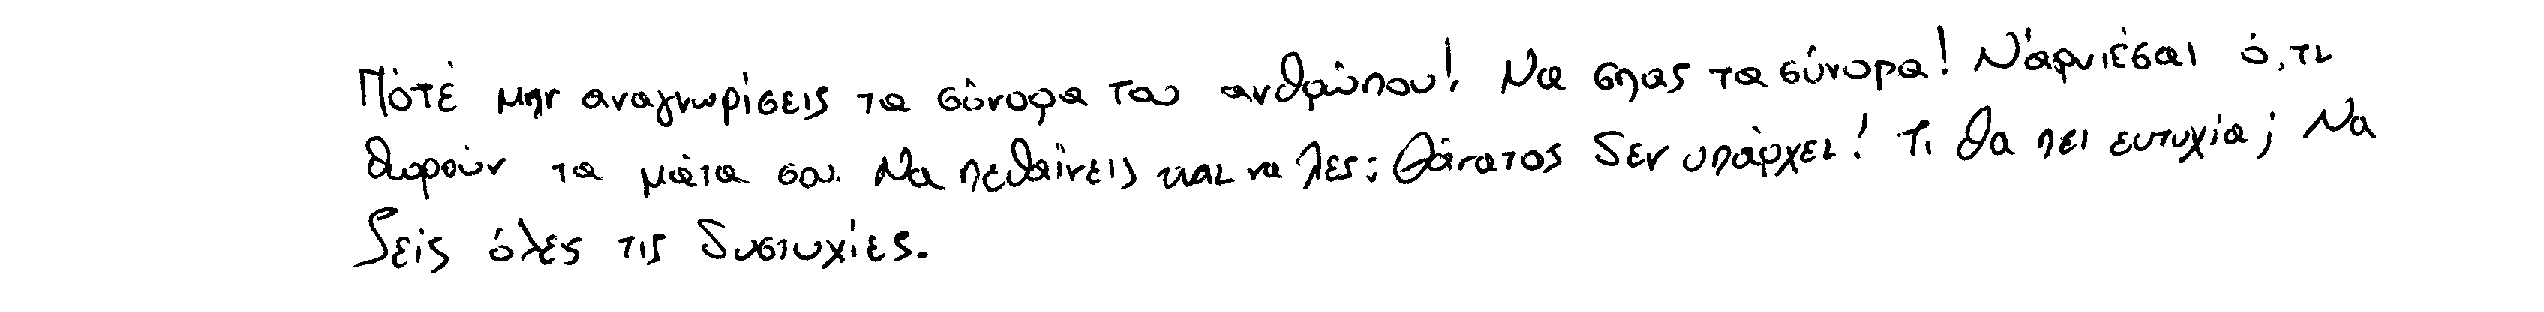 Πότέ μην αναγνωρίσεις τα σύνορα του ανθρώπου! Να σπας τα σύνορα! Ν'άρνιέσαι ό,τι
θωρούν τα μάτα σου. Να πεθαίνεις και να λες: Θάνατος δεν υπάρχει! Τι θα πει ευτυχία; Να
ζείς όλες τις δυστυχίες.